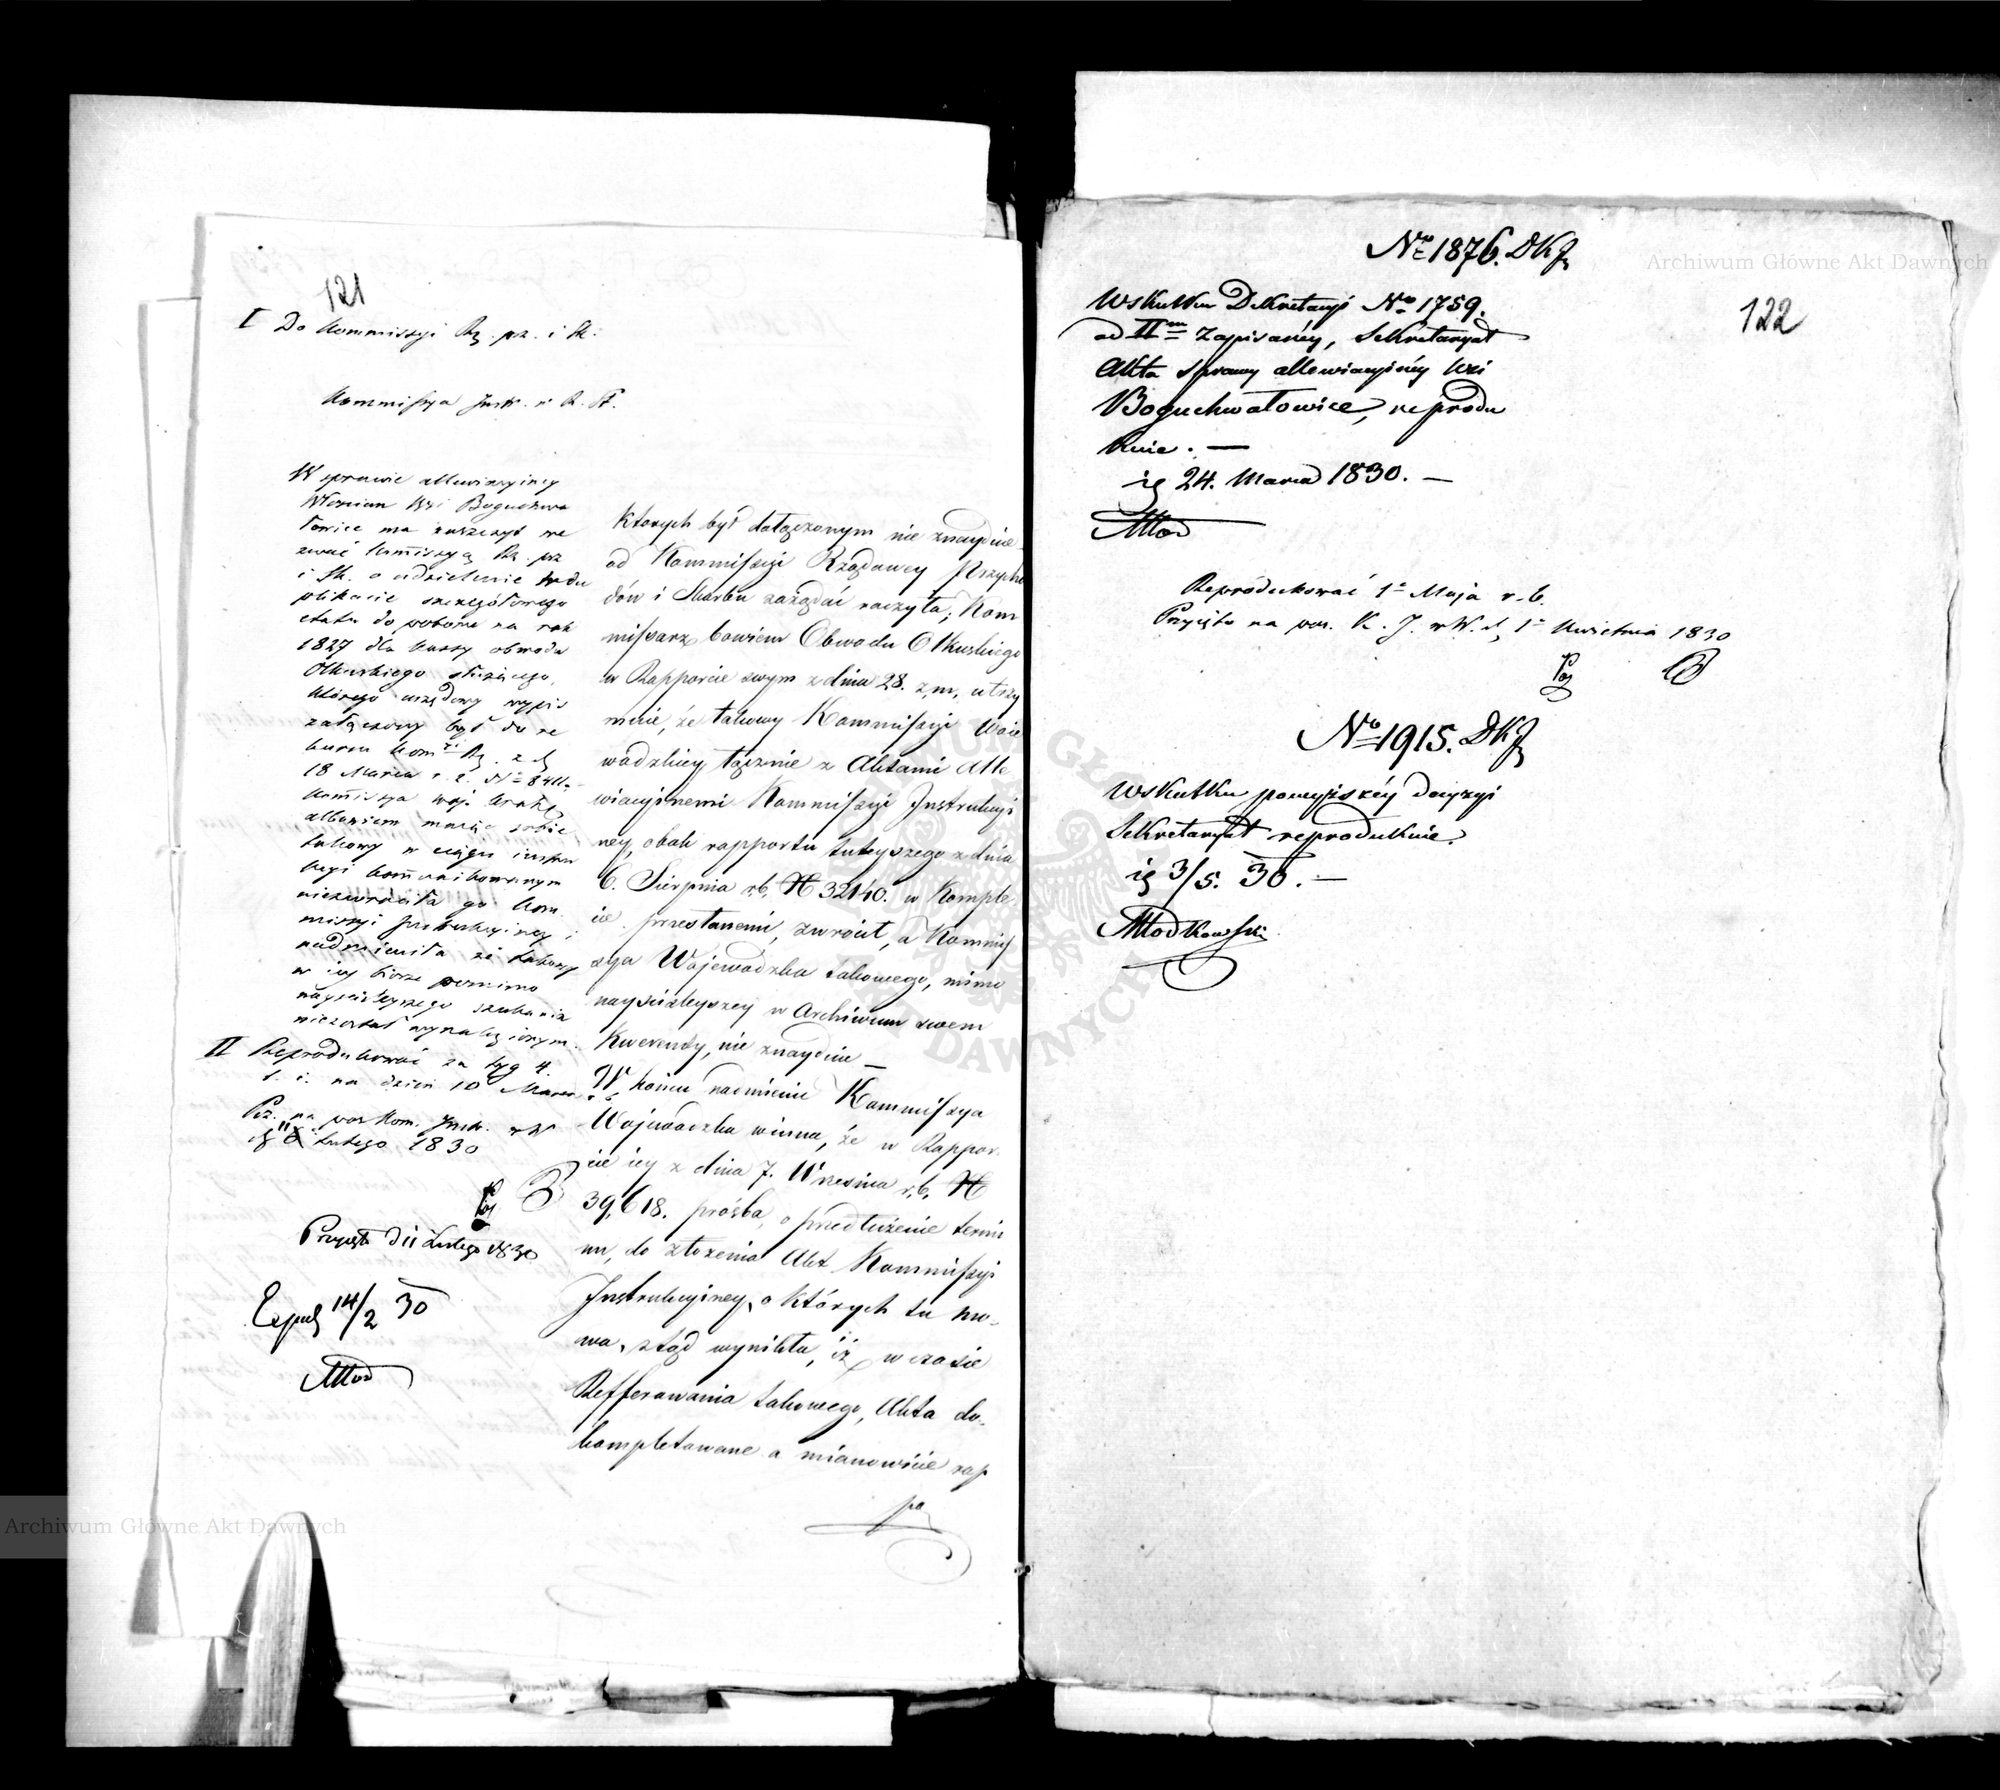 121
I Do Kommissyi Rz. prz. i Sk.
Kommissya Instr. w K. P.
W sprawie allewiacyiney
Włościan Wsi Boguchwa
łowice ma zaszczyt we
zwać Kommissyą Rz. prz
i Sk. o udzielenie w du
plikacie szczegółowego
etatu do poboru na rok
1827 dla kassy obwodu
Olkuskiego służącego,
którego urzędowy wypis
załączony był do re
kursu Kom Rz. z d
18 Marca r. z. N 8411.
Kommissya woj. Krak.
albowiem mając sobie
takowy w ciągu instru
kcyi kommunikowanym
niezwróciła go Kom
missyi Instrukcyiney i
nadmieniła że takowy
w iey biórze pomimo
nayściśleyszego szukania
niezostał wynalezionym.
II Reprodukować za tyg 4.
t. i. na dzień 10 Marca r b
Prz. na pos Kom. Instr. w W
d 11 Lutego 1830
Przyięto d 11 Lutego 1830
Exped 14/2 30
Młod
których był dołączonym nie znaydzie
od Kommissyi Rządowey Przycho
dów i Skarbu zażądać raczyła; Kom
missarz bowiem Obwodu Olkuskiego
w Rapporcie swym z dnia 28. z.m. utrzy
muie, że takowy Kommissyi Woie
wódzkiey łącznie z Aktami Alle
wiacyinemi Kommissyi Instrukcyi
ney, obok rapportu tuteyszego z dnia
6. Sierpnia r.b. N 32140. w komple
cie przesłanemi, zwrócił, a Kommis
sya Wojewódzka takowego, mimo
nayściśleyszey w Archiwum swem
Kwerendy, nie znaydzie —
W końcu nadmienić Kommissya
Wojewódzka winna, że w Rappor
cie iey z dnia 7. Września r.b. N
39,618. prośba, o przedłużenie termi
nu, do złożenia Akt Kommissyi
Instrukcyiney, o których tu mo-
wa, ztąd wynikła, iż w czasie
Refferowania takowego, Akta do-
kompletowane a mianowicie rap
po
No 1876. DKJ
122
Wskutku Dekretacyi No 1759.
ad II zapisanéy, Sekretaryat
Akta sprawy allewiacyinéy Wsi
Boguchwałowice, reprodu
kuie. —
24. Marca 1830. —
Młod
Reprodukować 1 Maja r. b.
Przyięto na pos. K. J. w W. d 1 Kwietnia 1830
No 1915. DKJ
Wskutku powyższéy decyzyi
Sekretaryat reprodukuie.
3/5. 30. —
Młodkowski
Archiwum Główne Akt Dawnych
Archiwum Główne Akt Dawnych